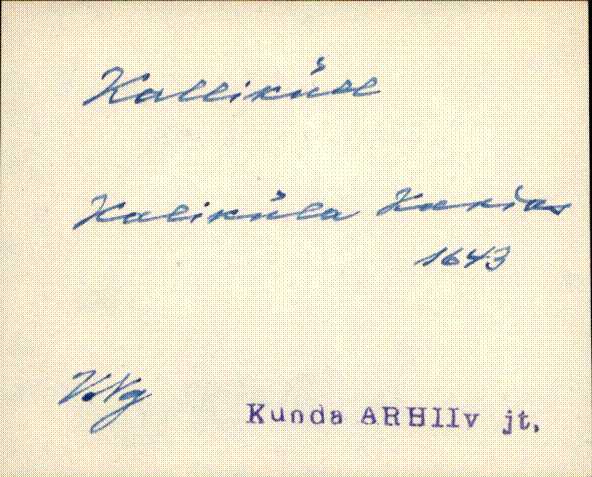 Kalliküll
Kaliküla Harias
1643
V.Ng
Kunda ARHIIv jt.